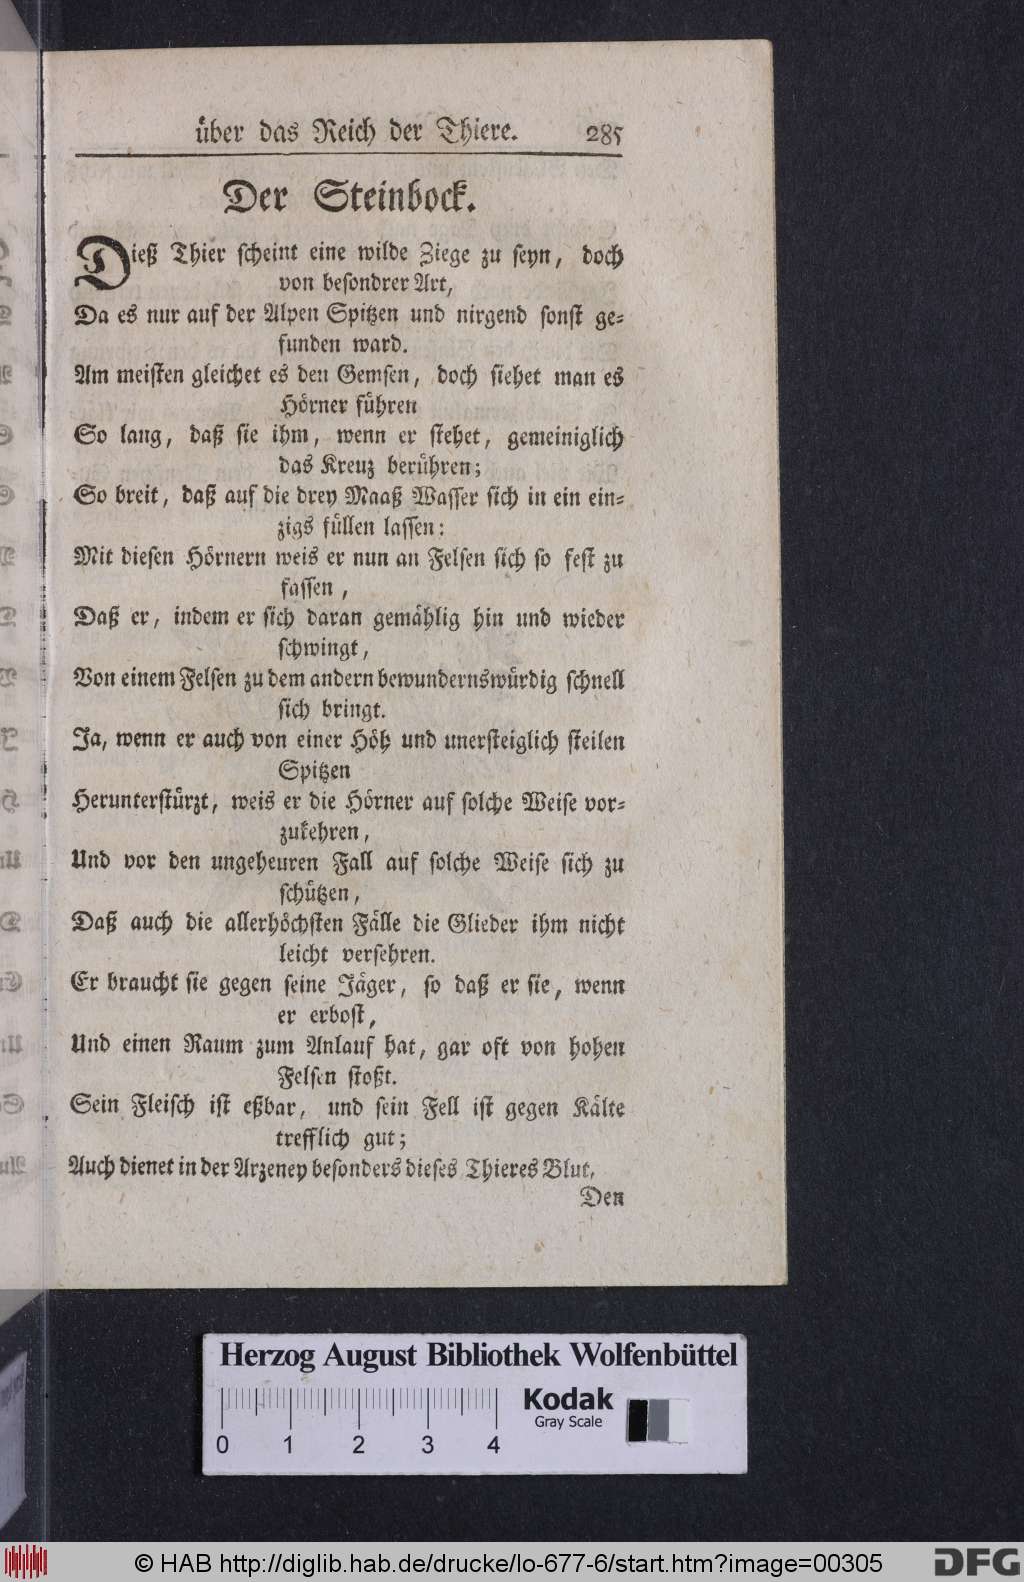 über das Reich der Thiere. 285
Der Steinbock.
Dieß Thier scheint eine wilde Ziege zu seyn, doch
von besondrer Art,
Da es nur auf der Alpen Spitzen und nirgend sonst ge-
funden ward.
Am meisten gleichet es den Gemsen, doch siehet man es
Hörner führen
So lang, daß sie ihm, wenn er stehet, gemeiniglich
das Kreuz berühren;
So breit, daß auf die drey Maaß Wasser sich in ein ein-
zigs füllen lassen:
Mit diesen Hörnern weis er nun an Felsen sich so fest zu
fassen,
Daß er, indem er sich daran gemählig hin und wieder
schwingt,
Von einem Felsen zu dem andern bewundernswürdig schnell
sich bringt.
Ja, wenn er auch von einer Höh und unersteiglich steilen
Spitzen
Herunterstürzt, weis er die Hörner auf solche Weise vor-
zukehren,
Und vor den ungeheuren Fall auf solche Weise sich zu
schützen,
Daß auch die allerhöchsten Fälle die Glieder ihm nicht
leicht versehren.
Er braucht sie gegen seine Jäger, so daß er sie, wenn
er erbost,
Und einen Raum zum Anlauf hat, gar oft von hohen
Felsen stoßt.
Sein Fleisch ist eßbar, und sein Fell ist gegen Kälte
trefflich gut;
Auch dienet in der Arzeney besonders dieses Thieres Blut,
Den
Herzog August Bibliothek Wolfenbüttel
Kodak
Gray Scale
0 1 2 3 4
© HAB http://diglib.hab.de/drucke/lo-677-6/start.htm?image=00305
DFG